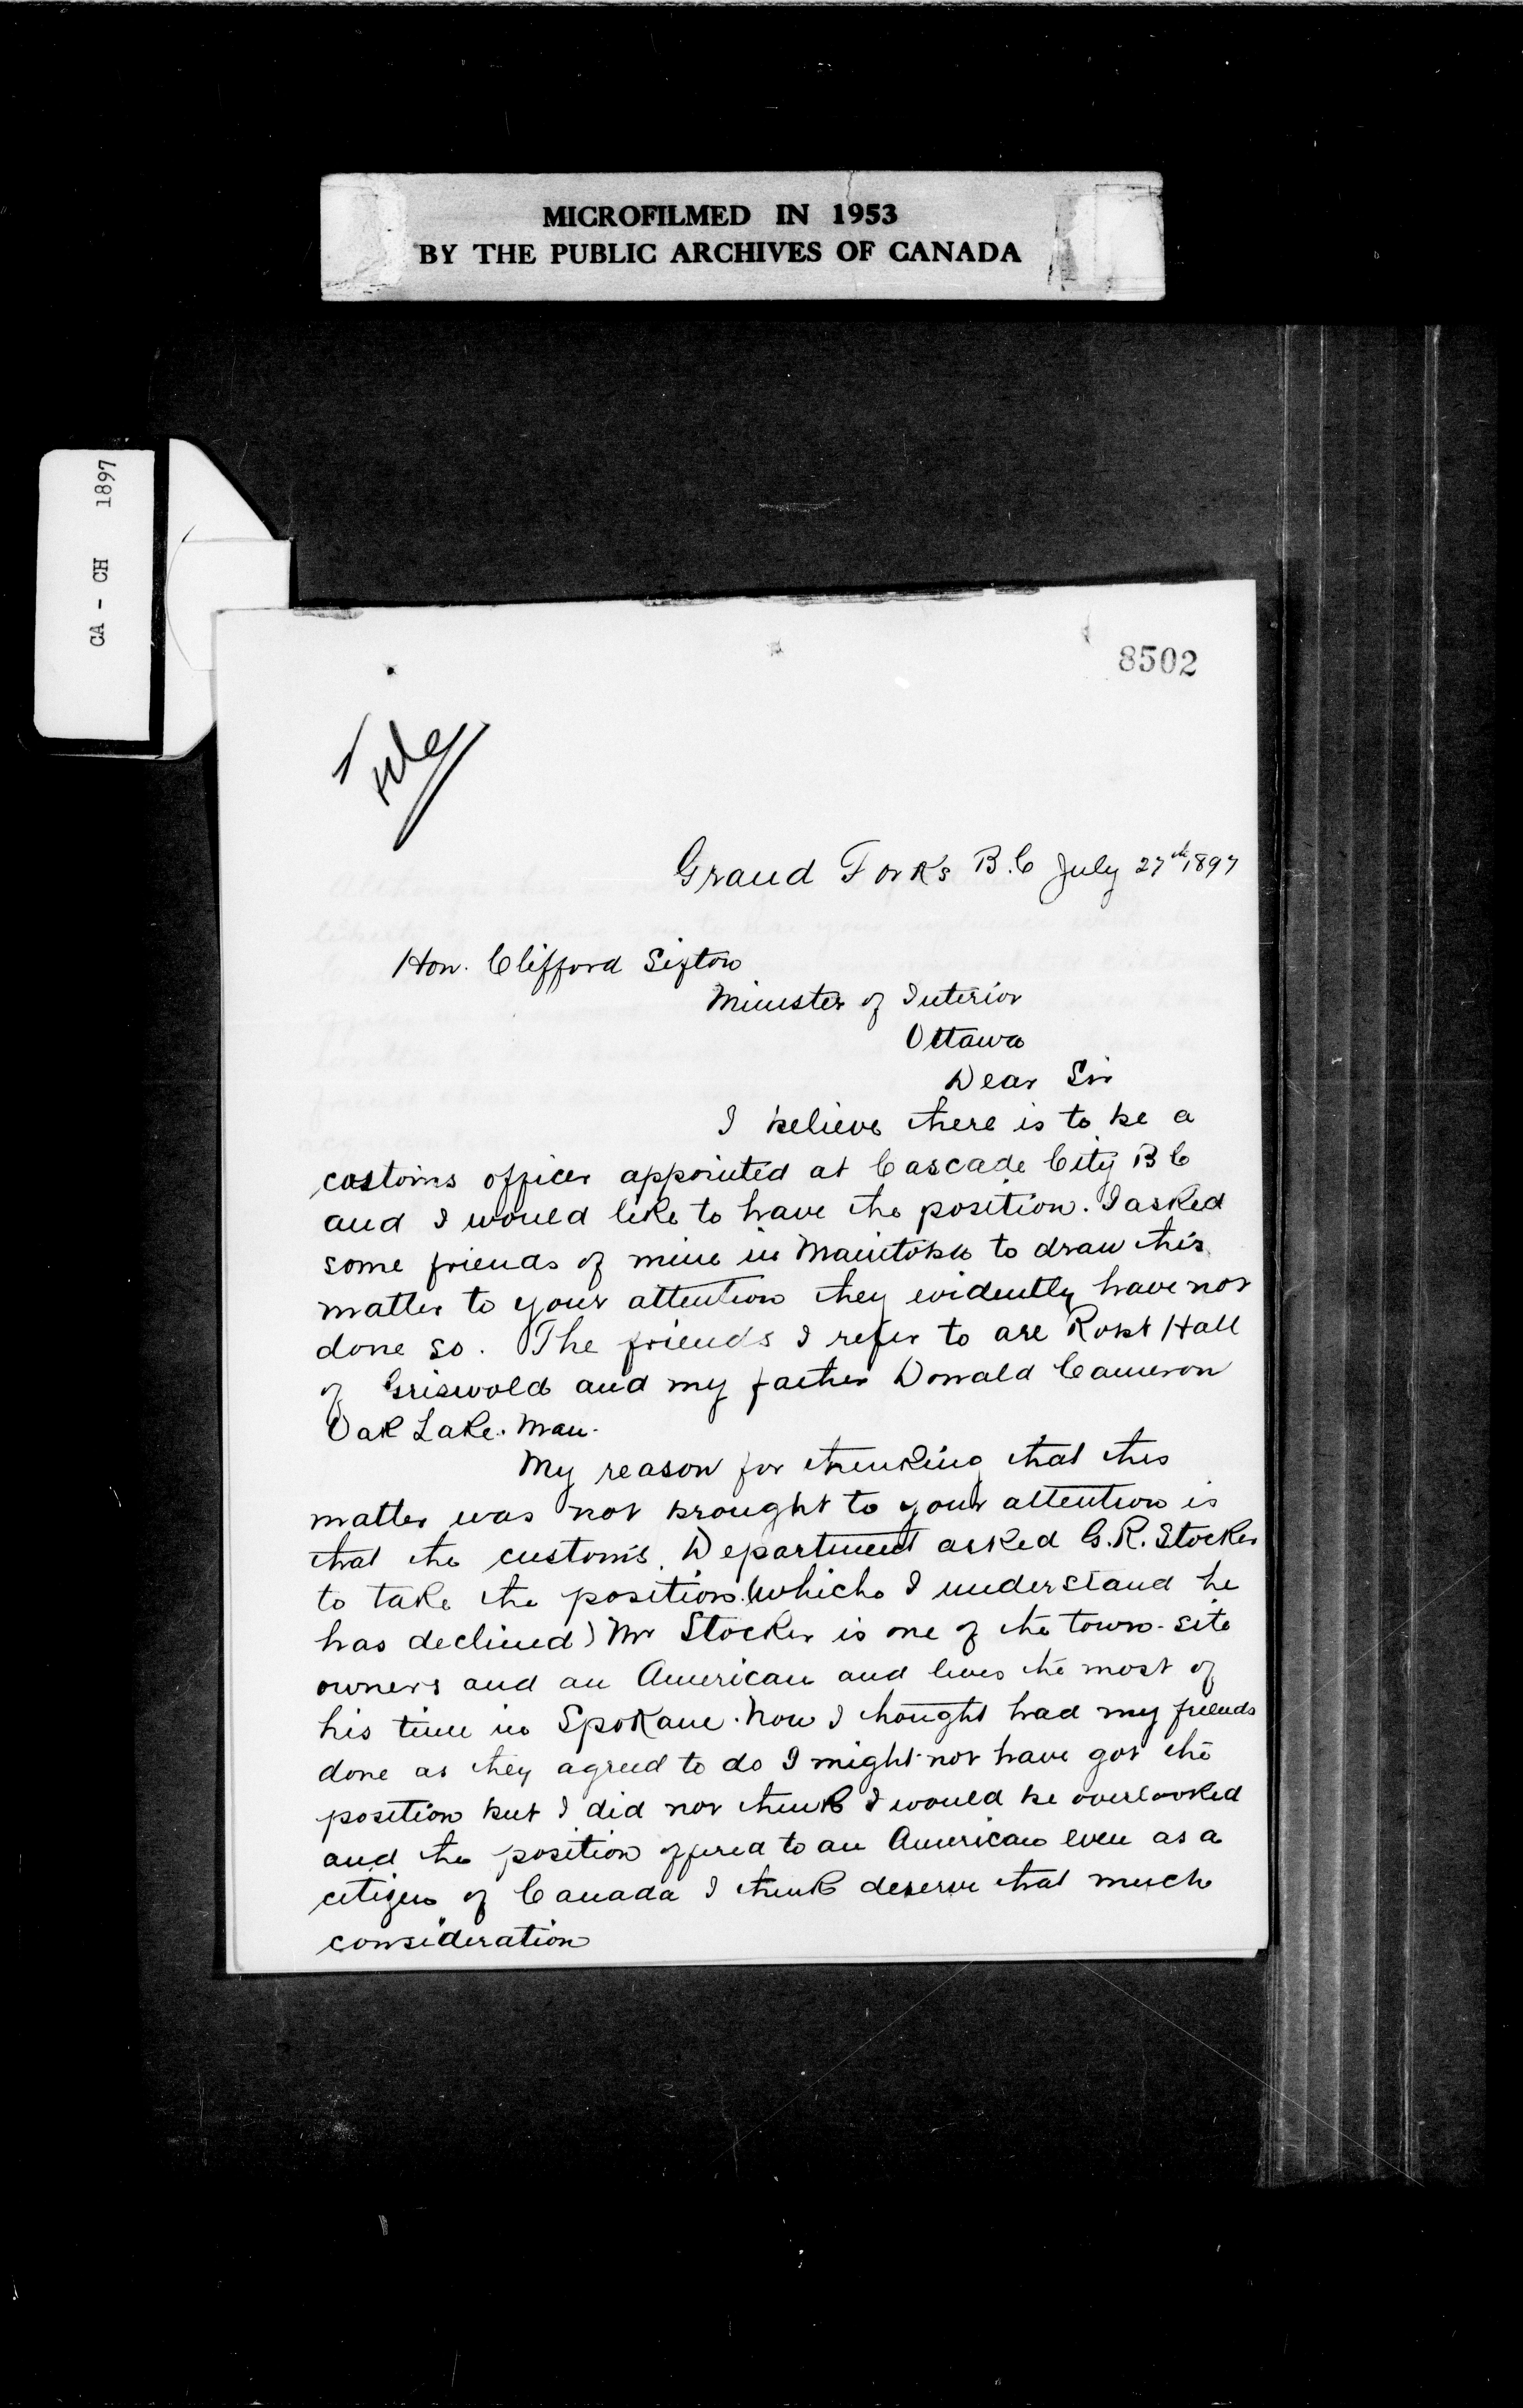 MICROFILMED IN 1953
BY THE PUBLIC ARCHIVES OF CANADA
CA - CH 1897
8502
File
Grand Forks B.C July 27th 1897
Hon. Clifford Sifton
Minister of Interior
Ottawa
Dear Sir
I believe there is to be a
customs officer appointed at Cascade City B C
and I would like to have the position. I asked
some friends of mine in Manitoba to draw this
matter to your attention they evidently have not
done so. The friends I refer to are Robt Hall
of Griswold and my father Donald Cameron
Oak Lake. Man.
My reason for thinking that this
matter was not brought to your attention is
that the customs Department asked G. R. Stocker
to take the position (which I understand he
has declined) Mr Stocker is one of the town-site
owners and an American and lives the most of
his time in Spokane. Now I thought had my friends
done as they agreed to do I might not have got the
position but I did not think I would be overlooked
and the position offered to an American even as a
citizen of Canada I think deserve that much
consideration